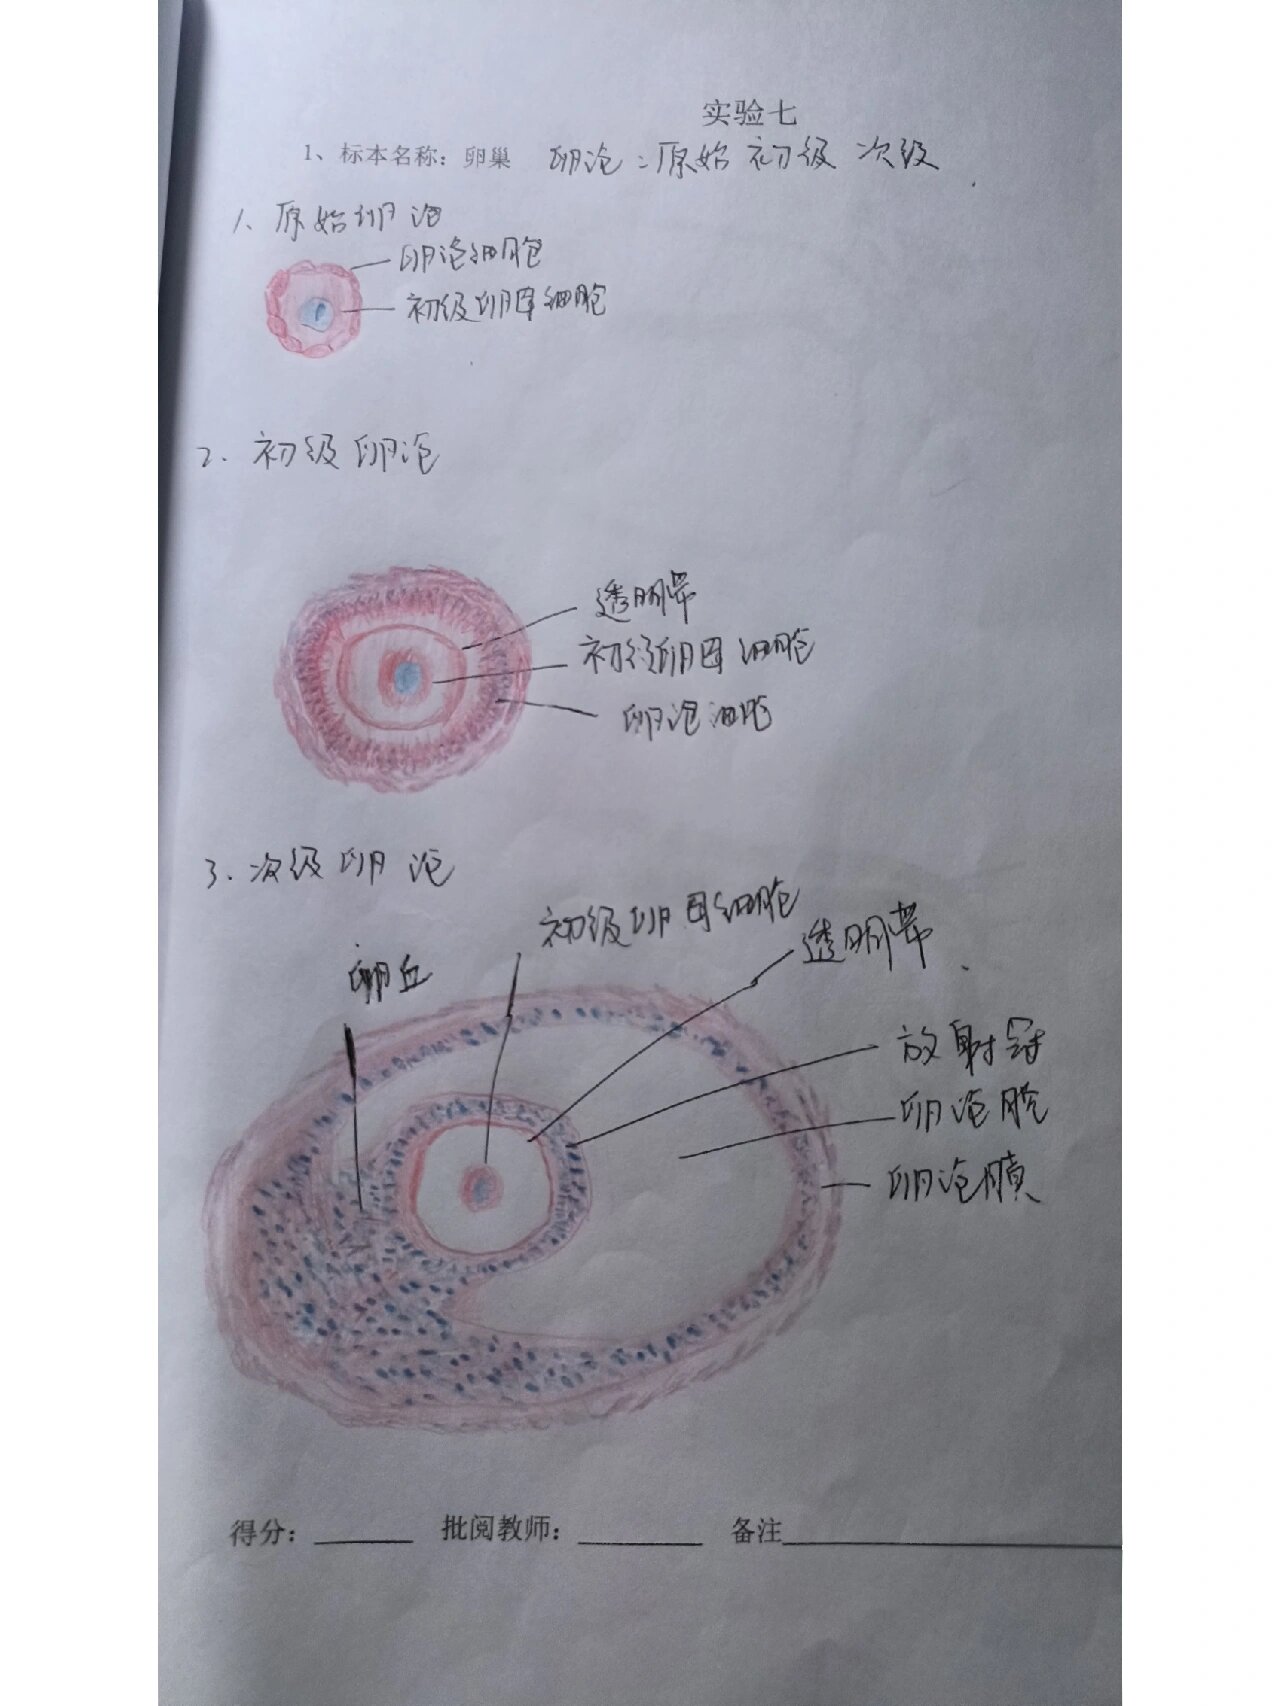 实验七
1、标本名称：卵巢 卵泡：原始 初级 次级
1、原始卵泡
卵泡细胞
初级卵母细胞
2. 初级卵泡
透明带
初级卵母细胞
卵泡细胞
3. 次级卵泡
初级卵母细胞
透明带
卵丘
放射冠
卵泡腔
卵泡膜
得分： 批阅教师： 备注